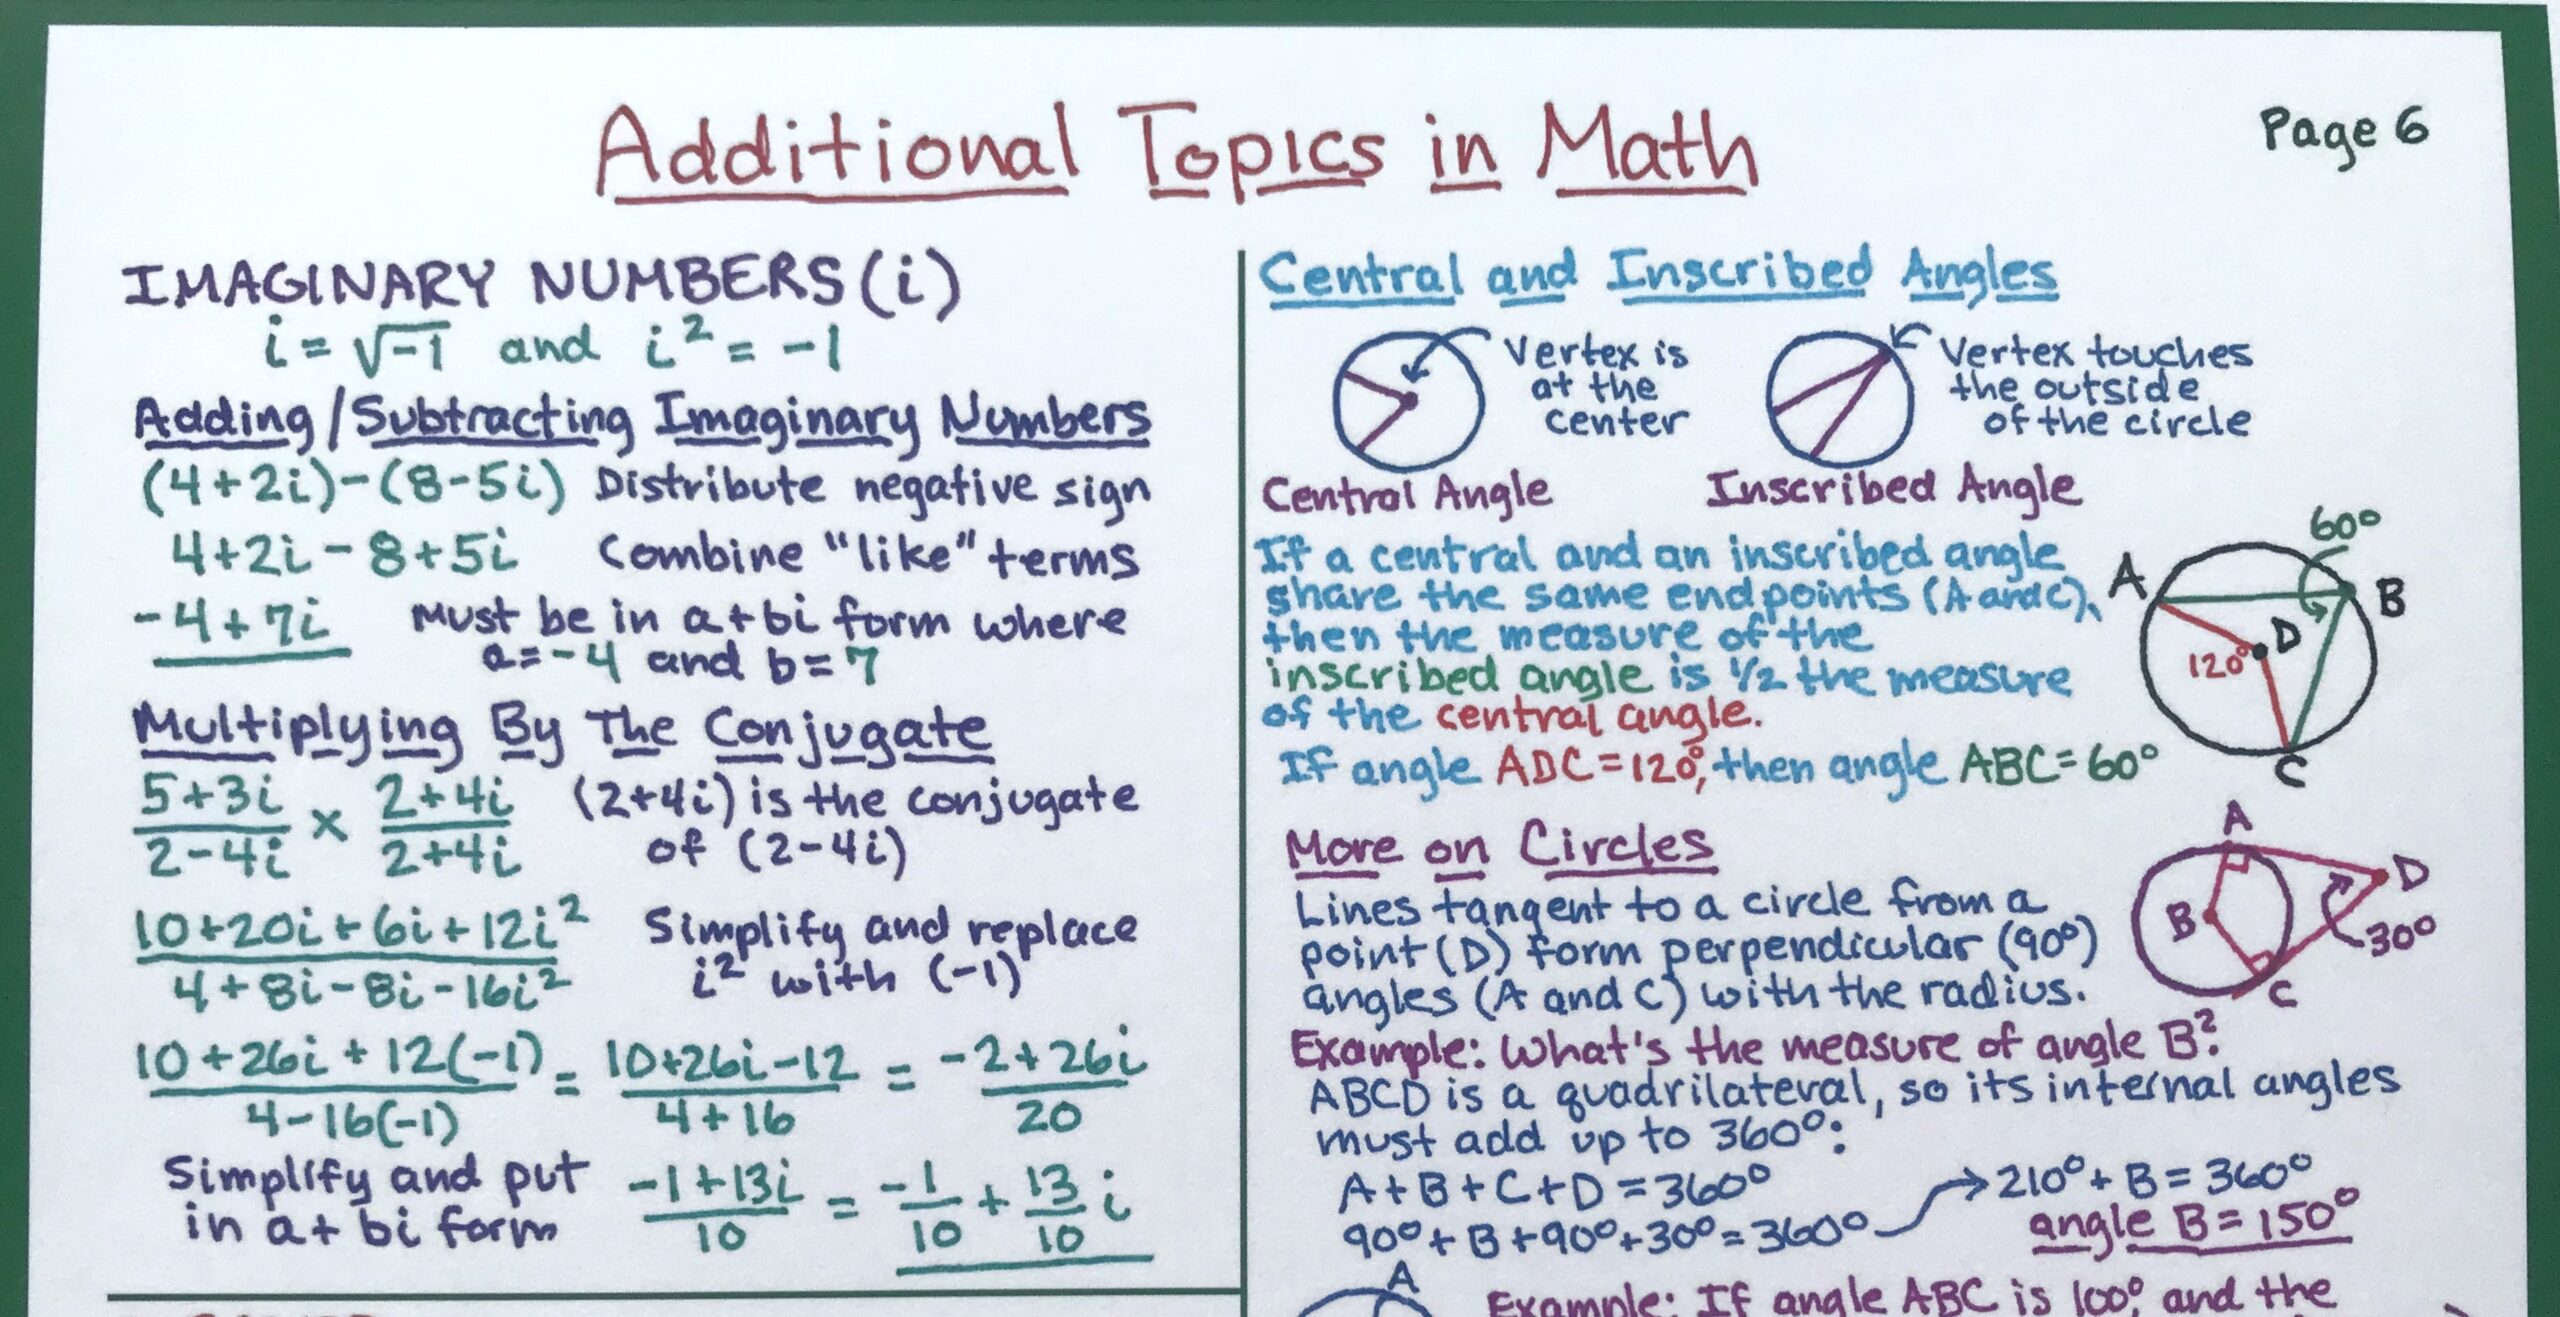 Additional Topics in Math
Page 6
IMAGINARY NUMBERS (i)
i = √-1 and i² = -1
Adding/Subtracting Imaginary Numbers
(4+2i)-(8-5i) Distribute negative sign
4+2i-8+5i Combine "like" terms
-4+7i Must be in a+bi form where
a=-4 and b=7
Multiplying By The Conjugate
5+3i/2-4i × 2+4i/2+4i (2+4i) is the conjugate
of (2-4i)
10+20i+6i+12i²/4+8i-8i-16i² Simplify and replace
i² with (-1)
10+26i+12(-1)/4-16(-1) = 10+26i-12/4+16 = -2+26i/20
Simplify and put
in a+bi form
-1+13i/10 = -1/10 + 13/10 i
Central and Inscribed Angles
Vertex is
at the
center
Central Angle
Vertex touches
the outside
of the circle
Inscribed Angle
If a central and an inscribed angle
share the same endpoints (A and C),
then the measure of the
inscribed angle is 1/2 the measure
of the central angle.
If angle ADC=120°, then angle ABC=60°
60°
A
B
D
120°
C
More on Circles
Lines tangent to a circle from a
point (D) form perpendicular (90°)
angles (A and C) with the radius.
A
D
B
30°
C
Example: What's the measure of angle B?
ABCD is a quadrilateral, so its internal angles
must add up to 360°:
A+B+C+D=360°
90°+B+90°+30°=360°
210°+B=360°
angle B=150°
A
Example: If angle ABC is 100°, and the